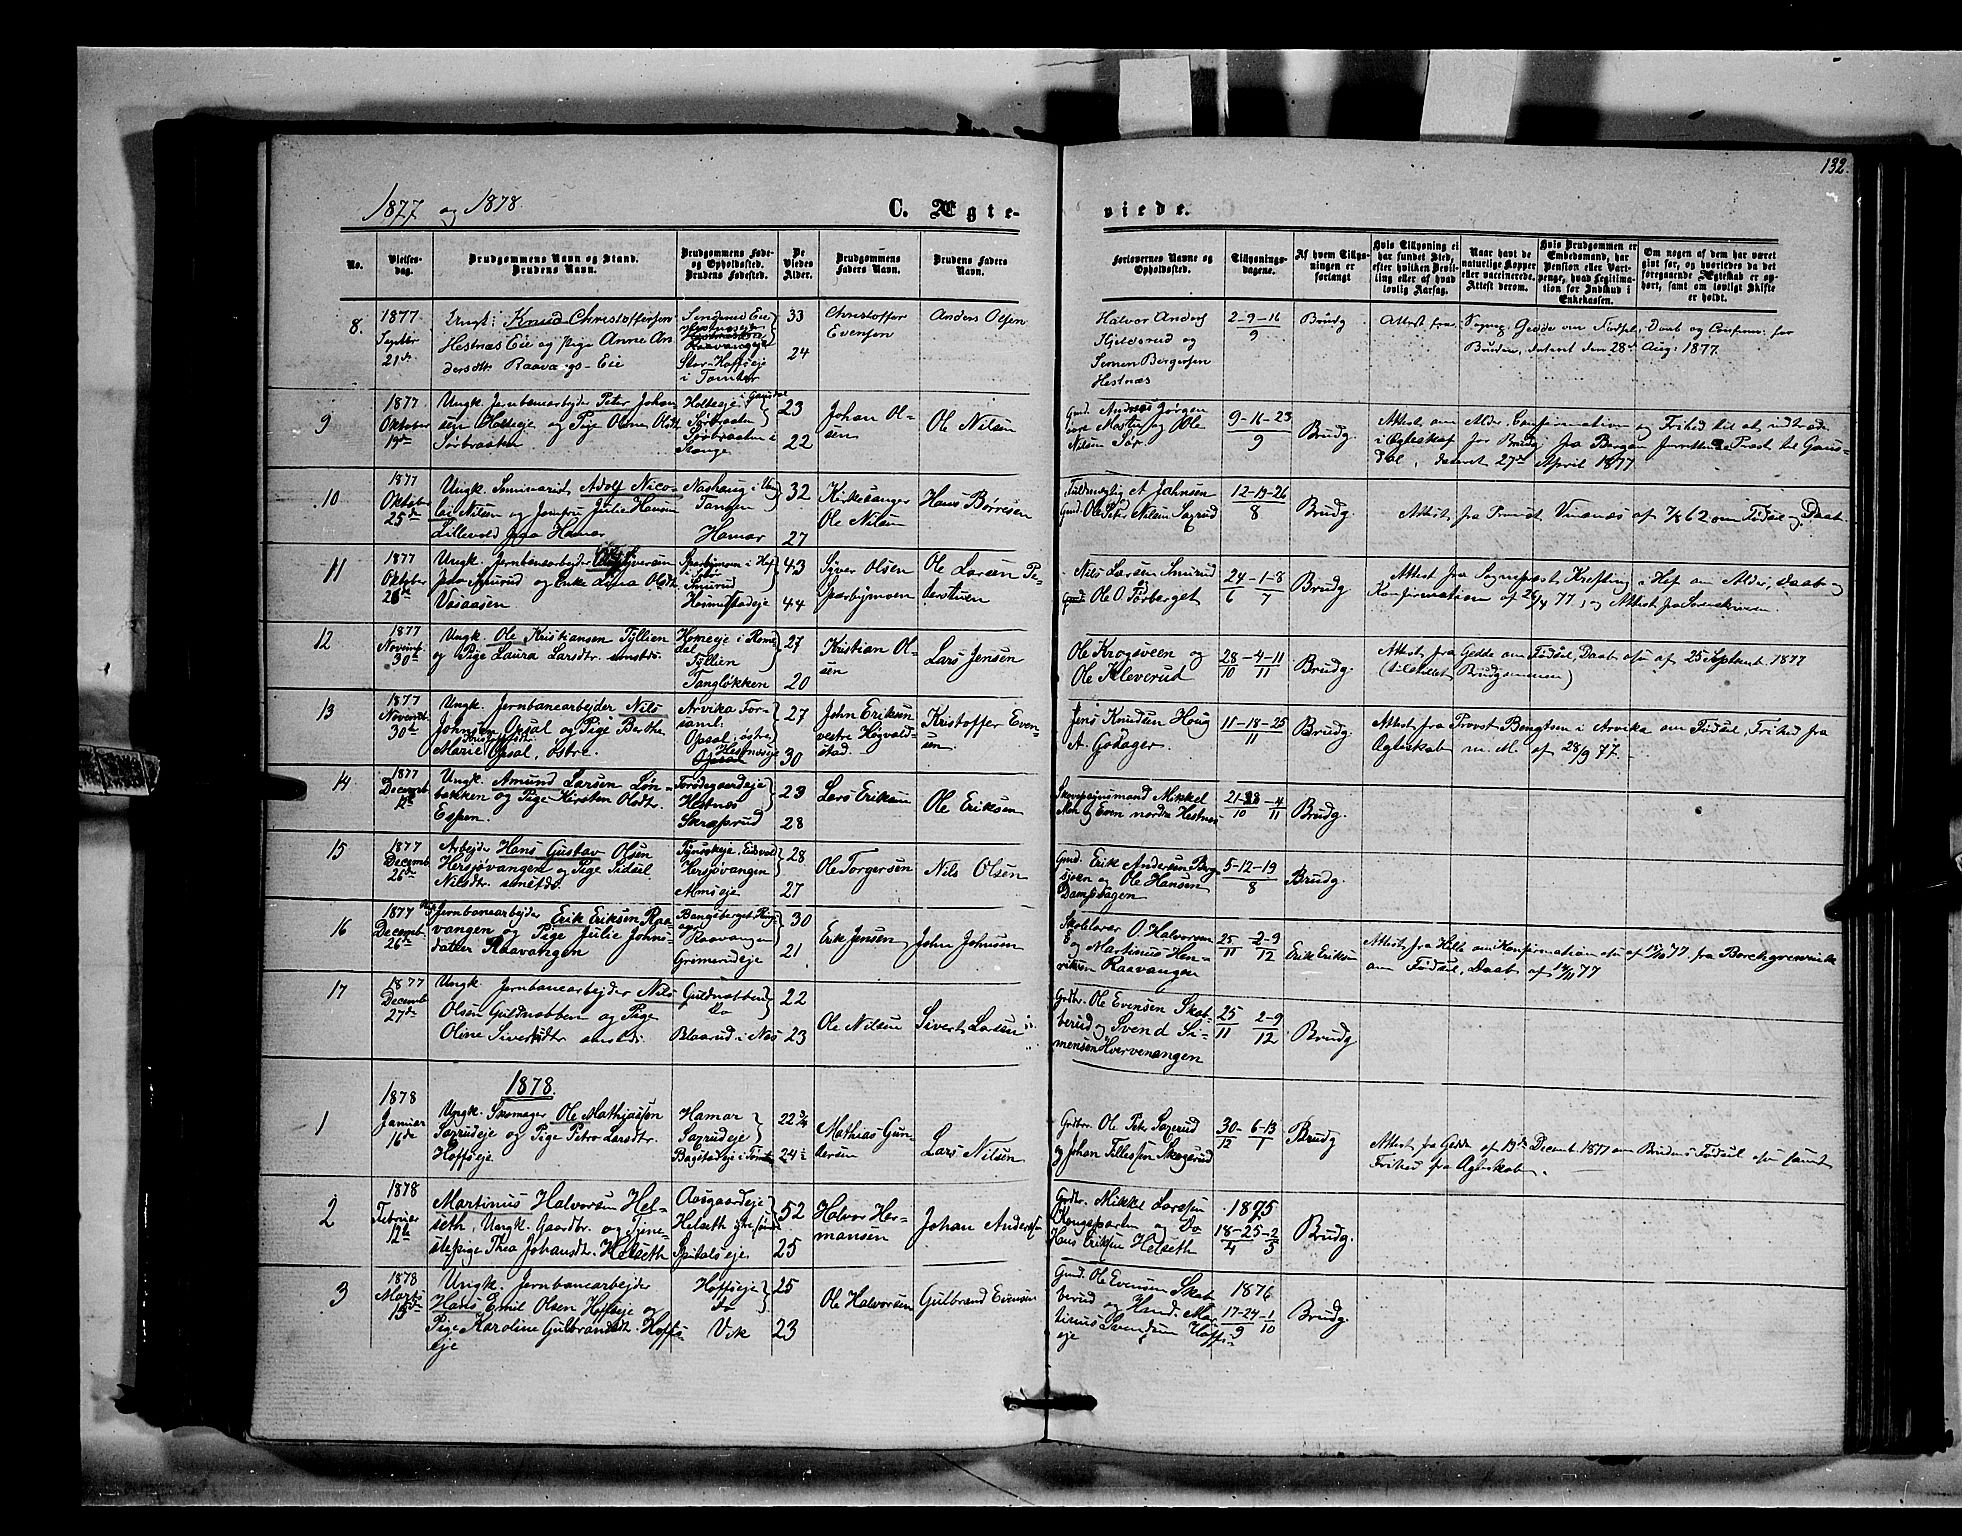 132.
1877 og 1878.
C. Ægte-
viede.
No.
Vielses-
dag.
Brudgommens Navn og Stand.
Brudens Navn.
Brudgommens Føde-
og Opholdssted.
Brudens Fødested.
De
Viedes
Alder.
Brudgommens
Faders Navn.
Brudens Faders
Navn.
Forlovernes Navne og
Opholdssted.
Tillysnings-
dagene.
Af hvem Tillys-
ningen er
forlangt
Hvis Tillysning ei
har fundet Sted,
efter hvilken Bevil-
ling eller af hvad
lovlig Aarsag.
Naar havt de
naturlige Kopper
eller vaccinerede.
Attest derom.
Hvis Brudgommen er
Embedsmand, har
Pension eller Vart-
penge, hvad Legitima-
tion for Indskud i
Enkekassen.
Om nogen af dem har været
gift før, og hvorledes da det
foregaaende Ægteskab er op-
hørt, samt om lovligt Skifte
er holdt.
8.
1877
Septbr
21de
Ungk: Knud Christoffersen
Hestnæs Eie og Pige Anne An
dersdtr Raavangs-Eie
Stor-Hoffseie
i Tomter
33
24
Christoffer
Evensen
Anders Olsen
Halvor Anders
Hjelverud og
Simen Bergersen
Hestnæs
2-9-16
9
Brudg
Attest fra Sognep. Gedde om Fødsel, Daab og Confirm. for
Bruden, dateret den 28de Aug: 1877.
9
1877
Oktober
19de
Ungk. Jernbanearbejder Peter Johan-
sen Holteje og Pige Oline Olsdt.
Sørbraaten
Holteeje i Gausdal
Sørbraaten
Sørbraaten i
Stange
23
22
Johan Ol-
sen
Ole Nilsen
Gmd. Andreas Jørgen
og Ole
Nilsen Sør
9-16-23
9
Brudg.
Attest om Alder, Confirmation og Frihed til at indtræde
i Ægteskab for Brudg. fra Provst til Gaus-
dal, dateret 27de April 1877
10
1877
Oktober
25de
Ungk. Seminarist Adolf Nico-
lai Nilsen og Jomfru Julie Hansen
Lillevold paa Hamar
Tangen
Hamar
32
27
Kirkesanger
Ole Nilsen
Hans Børresen
Fuldmægtig A. Jahnsen
Gmd. Ole Peter Nilsen Sagrud
12-19-26
8
Brudg.
Attest fra Provst Vinsnes af 7/8 62 om Fødsel og Daab
11
1877
Oktober
Ungk. Jernbanearbejder Syversen
paa Smurud og Enke Lina Olsdt.
Vasaasen
Sparbymoen i Hof
Smurud
43
44
Syver Olsen
Sparbymoen
Ole Larsen Pe-
derstuen
Nils Larsen Smurud
Ole O. Torberget
24-1-8
6 7
Brudg
Attest fra Sognepræst Krefting i Hof om Alder, Daab og
Konfirmation af 26/4 77, og Attest fra Sorenskriveren.
12
1877
Novemb.
30te
Ungk. Ole Kristiansen Tyllien
og Pige Laura Larsdtr. smstds.
Homeje i Rome-
dal
Tyllien
Tangløkken
27
20
Kristian Ol-
sen
Lars Jensen
Ole Krogsveen og
Ole Kleverud
28-4-11
10 11
Brudg.
Attest fra Gedde om Fødsel, Daab osv af 25 Septemb. 1877
(tilstillet Brudgommen)
13
1877
Novemb.
30te
Ungk. Jernbanearbejder Nils
Johnsen Opsal og Pige Berthe
Marie Opsal, østre.
Arvika For-
saml.
Opsal, østre
Hestnæseje
Opsal
27
30
John Eriksen
vestre Högvald-
stad.
Kristoffer Even-
sen.
Jens Knudsen Houg
A. Godager.
11-18-25
11
Brudg.
Attest fra Provst Bengtsen i Arvika om Fødsel, Frihed fra
Ægteskab m. M. af 28/9 77.
14
1877
Decemb
Ungk. Amund Larsen Løn-
bakken og Pige Kirsten Olsdt.
Espen.
Torødegaardeje
Hestnæs
Skræprud
23
28
Lars Eriksen
Ole Eriksen
Mikkel
Moe og Even nordre Hestnæs
21-28-4
10 11
Brudg.
15
1877
Decemb
26de
Arbejder Hans Gustav Olsen
Hersjøvangen og Pige Sidsil
Nilsdtr. smstds.
Tynsekeje, Eidsvol
Hersjøvangen
Almseje
28
27
Ole Torgersen
Nils Olsen
Gmd. Erik Andersen Berg-
sjøen og Ole Hansen
Dampsagen
5-12-19
8
Brudg.
16
1877
Decemb
26de
Jernbanearbejder Erik Eriksen Raa-
vangen og Pige Julie Johns-
datter Raavangen
Bangsberget Ring-
sager
Raavangen
Grimerudeje
30
21
Erik Jensen
John Johnsen
Skolelærer O. Halvorsen
og Martinus Hen-
riksen Raavangen
25 2-9
11 12
Erik Eriksen
Attest fra Helle om Konfirmation osv af 15/10 77. fra Borchgrevink
om Fødsel, Daab af 14/11 77
17
1877
Decemb
27de
Ungk. Jernbanearbejder Nils
Olsen Guldnabben og Pige
Oline Sivertsdtr smstds.
Guldnabben
do
Blaarud i Næs
22
23
Ole Nilsen
Sivert Larsen
Grdbr. Ole Evensen Skat-
berud og Svend Si-
mensen Hvervenangen
25 2-9
11 12
Brudg.
1878.
1
1878
Januar
16de
Ungk. Skomager Ole Mathiassen
Sagrudeje og Pige Petra Larsdtr.
Hoffseje
Hamar
Sagrudeje
Bagstadeje i Tomter
22 3/4
24
Mathias Gun-
dersen
Lars Nilsen
Grdbr. Ole Pet. Sagerud
og Johan Tillessen Skogerud
30- 6-13
12 1
Brudg
Attest fra Gedde af 19de Decemb. 1877 om Brudens Fødsel osv samt
Frihed fra Ægteskab.
2
1878
Februar
12te
Martinus Halvorsen Hel-
seth, Ungk. Gaardbr. og Tjene-
stepige Thea Johansdt. Helseth
Aasgaardeje
Helseth
Spitalseje
52
25
Halvor Her-
mansen
Johan Andersen
Grdbr. Mikkel Larsen
Kongsparten og do
Hans Eriksen Helseth
1875
18-25-2
4 5
Brudg.
3
1878
Marts
15de
Ungk. Jernbanearbejder
Hans Emil Olsen Hoffseje og
Pige Karoline Gulbrandsdt. Hoffs-
eje
Hoffseje
do
Vik
25
23
Ole Halvorsen
Gulbrand Evensen
Gmd. Ole Evensen Skat-
berud og Hmd. Mar-
tinus Svendsen Hoffs-
eje
1876
17-24-1
9 10
Brudg.